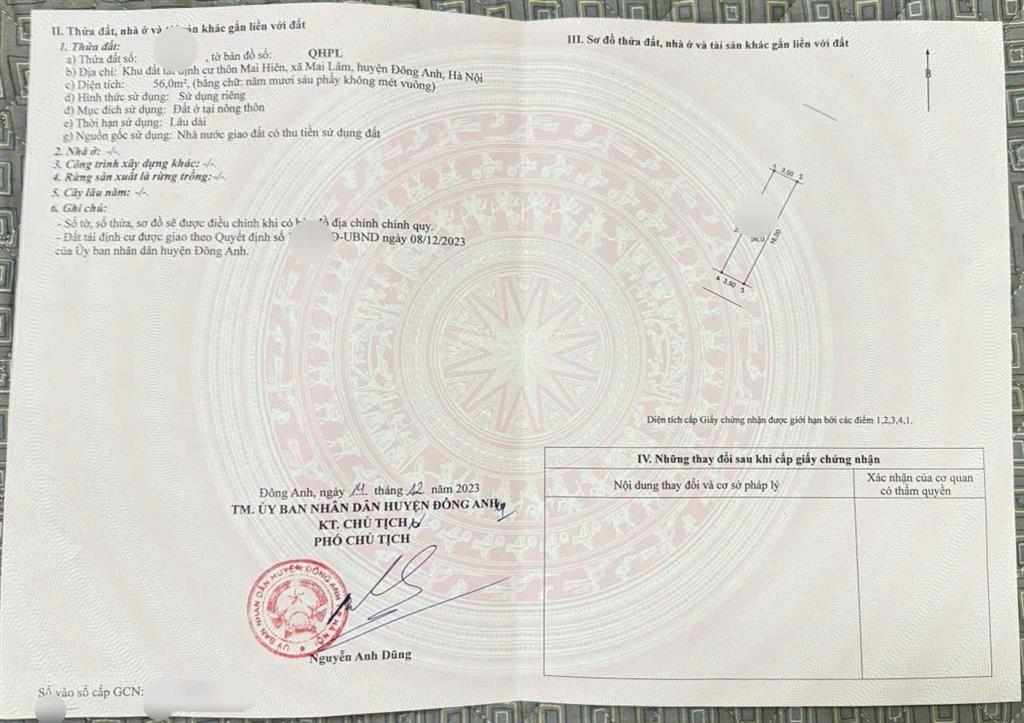 II. Thửa đất, nhà ở và tài sản khác gắn liền với đất
1. Thửa đất:
a) Thửa đất số: , tờ bản đồ số: QHPL
b) Địa chỉ: Khu đất tái định cư thôn Mai Hiên, xã Mai Lâm, huyện Đông Anh, Hà Nội
c) Diện tích: 56,0m², (bằng chữ: năm mươi sáu phẩy không mét vuông)
d) Hình thức sử dụng: Sử dụng riêng
đ) Mục đích sử dụng: Đất ở tại nông thôn
e) Thời hạn sử dụng: Lâu dài
g) Nguồn gốc sử dụng: Nhà nước giao đất có thu tiền sử dụng đất
2. Nhà ở: -/-.
3. Công trình xây dựng khác: -/-.
4. Rừng sản xuất là rừng trồng:-/-.
5. Cây lâu năm: -/-.
6. Ghi chú:
- Số tờ, số thửa, sơ đồ sẽ được điều chỉnh khi có địa chính chính quy.
- Đất tái định cư được giao theo Quyết định số Đ-UBND ngày 08/12/2023
của Ủy ban nhân dân huyện Đông Anh.
Đông Anh, ngày 11 tháng 12 năm 2023
TM. ỦY BAN NHÂN DÂN HUYỆN ĐÔNG ANH
KT. CHỦ TỊCH
PHÓ CHỦ TỊCH
ỦY BAN NHÂN DÂN HUYỆN ĐÔNG ANH
Nguyễn Anh Dũng
Số vào sổ cấp GCN:
III. Sơ đồ thửa đất, nhà ở và tài sản khác gắn liền với đất
B
1 3.50 2
16.00
4 3.50 3
Diện tích cấp Giấy chứng nhận được giới hạn bởi các điểm 1,2,3,4,1.
IV. Những thay đổi sau khi cấp giấy chứng nhận
Nội dung thay đổi và cơ sở pháp lý
Xác nhận của cơ quan
có thẩm quyền